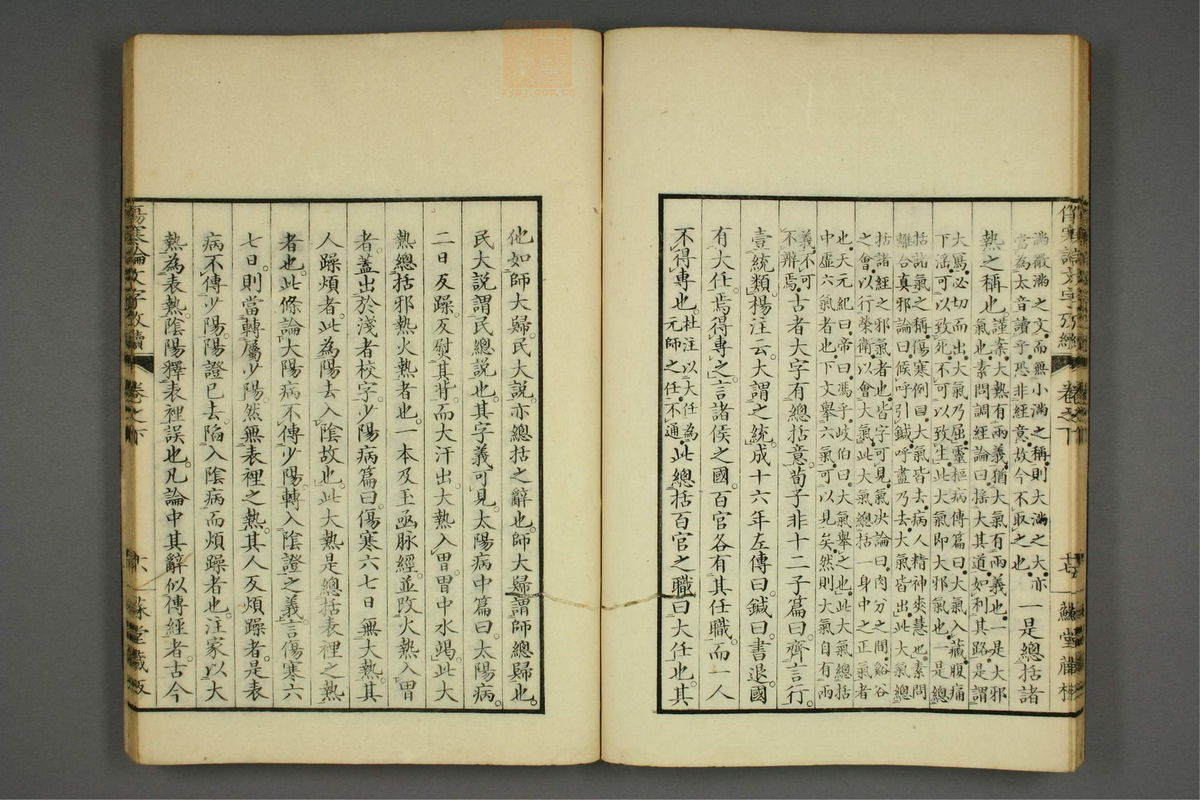 傷寒論文字攷續 卷之下
滿散滿之文而無小滿之稱則大滿之大亦
當為太音讀乎恐非經意故今不取之也 一是總括諸
熱之稱也謹案大熱有兩義猶大氣有兩義也是大邪
氣也素問調經論曰搖大其道如利其路是謂
大寫必切而出大氣乃屈靈樞病傳篇曰大氣入藏腹痛
下淫可以致死不可以致生此大氣即大邪氣也是總
括諸氣之稱傷寒例曰大氣皆去病人精神爽慧也素問
離合真邪論曰候呼引鍼呼盡乃去大氣皆出此大氣總
括諸經之邪氣者也皆字可見氣決論曰肉分之間谿谷
之會以行榮衛以會大氣此大氣總括一身中之正氣者
也天元紀曰帝曰馮乎岐伯曰大氣舉之也此大氣總括
中虛六氣者也下文舉六氣可以見矣然則大氣自有兩
義不可
不辨焉古者大字有總括意荀子非十二子篇曰齊言行
壹統類楊注云大謂之統成十六年左傳曰鍼曰書退國
有大任焉得專之言諸侯之國百官各有其任職而一人
不得專也杜注以大任為
元帥之任不通此總括百官之職曰大任也其
他如師大歸民大說亦總括之辭也師大歸謂師總歸也
民大說謂民總說也其字義可見太陽病中篇曰太陽病
二日反躁反熨其背而大汗出大熱入胃胃中水竭此大
熱總括邪熱火熱者也一本及玉函脉經並改火熱入胃
者蓋出於淺者校字少陽病篇曰傷寒六七日無大熱其
人躁煩者此為陽去入陰故也此大熱是總括表裡之熱
者也此條論太陽病不傳少陽轉入陰證之義言傷寒六
七日則當轉屬少陽然無表裡之熱其人反煩躁者是表
病不傳少陽陽證已去陷入陰病而煩躁者也注家以大
熱為表熱陰陽釋表裡誤也凡論中其辭似傳經者古今
傷寒論文字攷續 卷之下